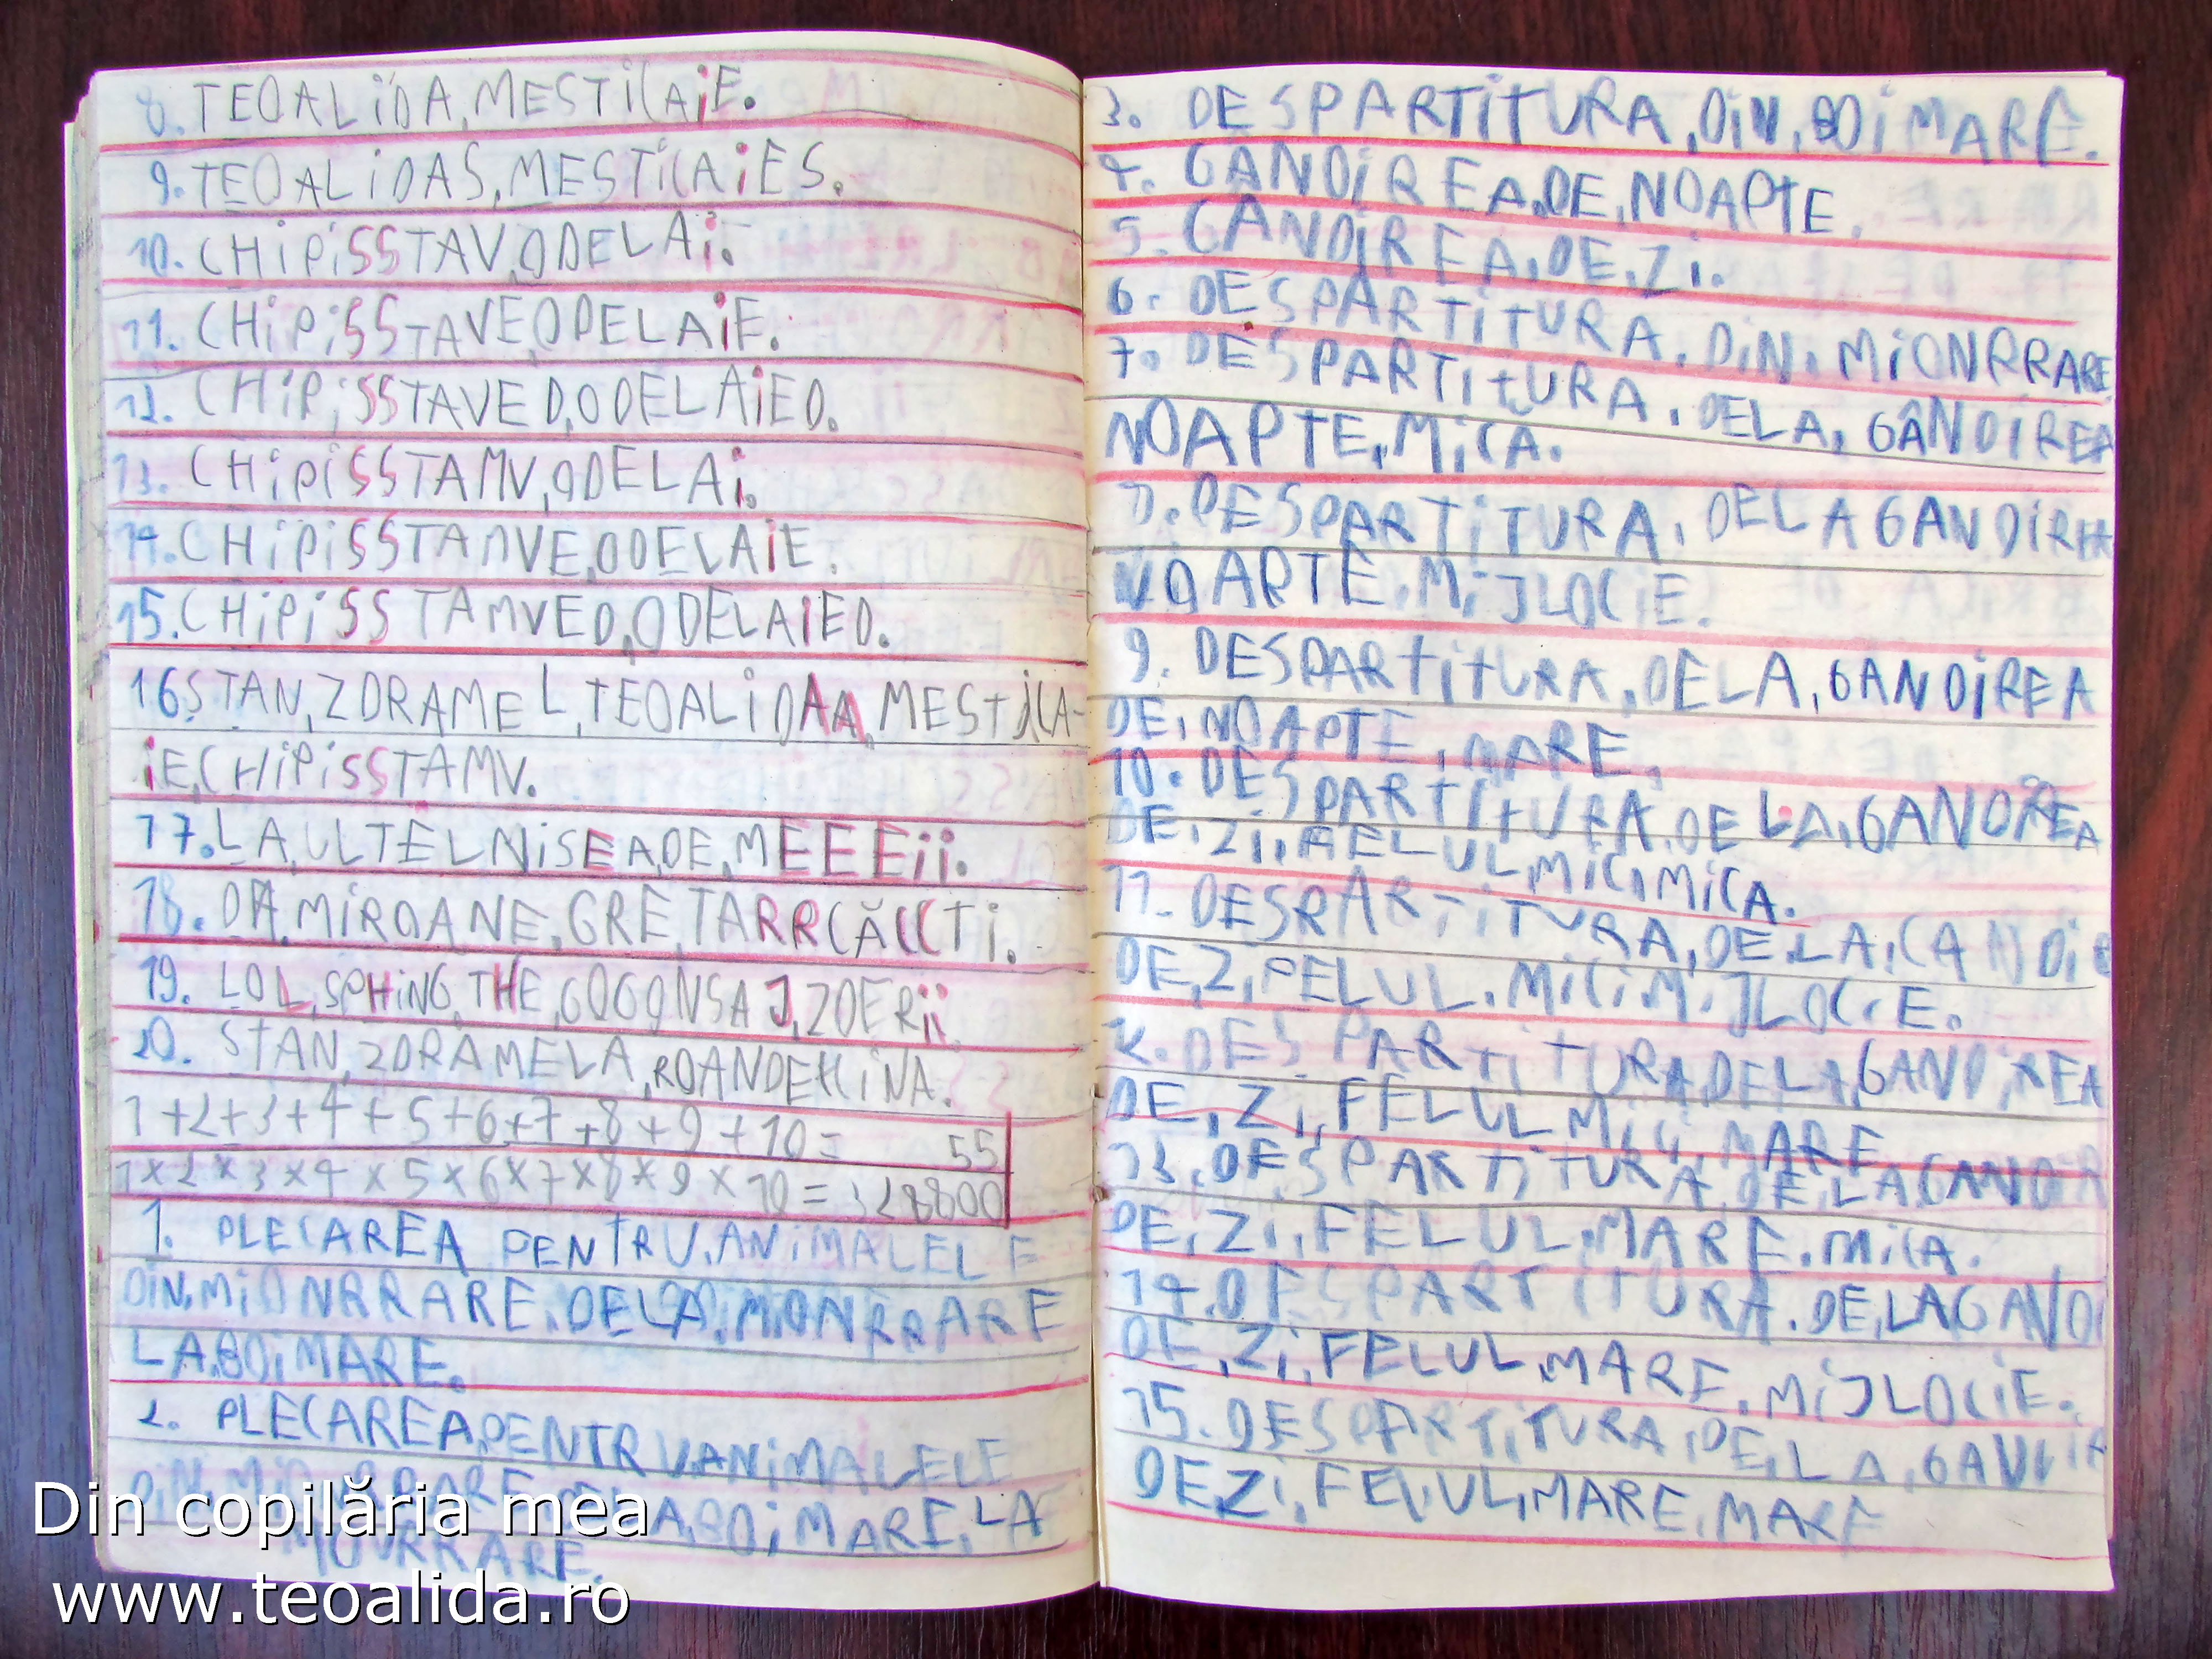 8. TEOALiDA, MESTiCAiE.
9. TEOALiDAS, MESTiCAiES.
10. CHiPiSSTAV, ODELAi.
11. CHiPiSSTAVE, ODELAiE.
12. CHiPiSSTAVED, ODELAiED.
13. CHiPiSSTAMV, ODELAi.
14. CHiPiSSTAMVE, ODELAiE.
15. CHiPiSSTAMVED, ODELAiED.
16 STAN, ZDRAMEL, TEOALiDAA, MESTiCA-
iE, CHiPiSSTAMV.
17. LA, ULTELNiSEA, DE, MEEEii.
18. DA, MiROANE, GRE, TARRCĂCCTi.
19. LOL, SPHiNG, THE, GOGONSAJ, ZOERii.
20. STAN, ZDRAMELA, ROANDEHiNA.
1+2+3+4+5+6+7+8+9+10= 55
1×2×3×4×5×6×7×8×9×10=328800
1. PLECAREA PENTRU, ANiMALELE
DiN, MiONRRARE, DELA, MONRRARE
LA, BOiMARE.
2. PLECAREA, PENTRU, ANiMALELE
BOiMARE, LA
MONRRARE.
3. DESPARTiTURA, DiN, BOiMARE.
4. GANDiREA, DE, NOAPTE.
5. GANDiREA, DE, Zi.
6. DESPARTiTURA, DiN, MiONRRARE
7. DESPARTiTURA, DELA, GÂNDiREA
NOAPTE, MiCA.
DESPARTiTURA, DELA GANDiR
NOAPTE, MiJLOCiE.
9. DESPARTiTURA, DELA, GANDiREA
DE, NOAPTE, MARE.
10. DESPARTiTURA, DE LA, GANDiREA
DE, Zi, FELUL, MiCi, MiCA.
11. DESPARTiTURA, DE LA, GANDi
DE, Zi, FELUL, MiCi, MiJLOCiE.
12. DESPARTiTURA, DELA, GANDiREA
DE, Zi, FELUL, MiCi, MARE
13. DESPARTiTURA, DE, LA, GANDiR
DE, Zi, FELUL, MARE, MiCA.
14. DESPARTiTURA, DE, LA GAND
DE, Zi, FELUL, MARE, MiJLOCiE.
15. DESPARTiTURA, DE, LA, GANDi
DE, Zi, FELUL, MARE, MARE
Din copilăria mea
www.teoalida.ro